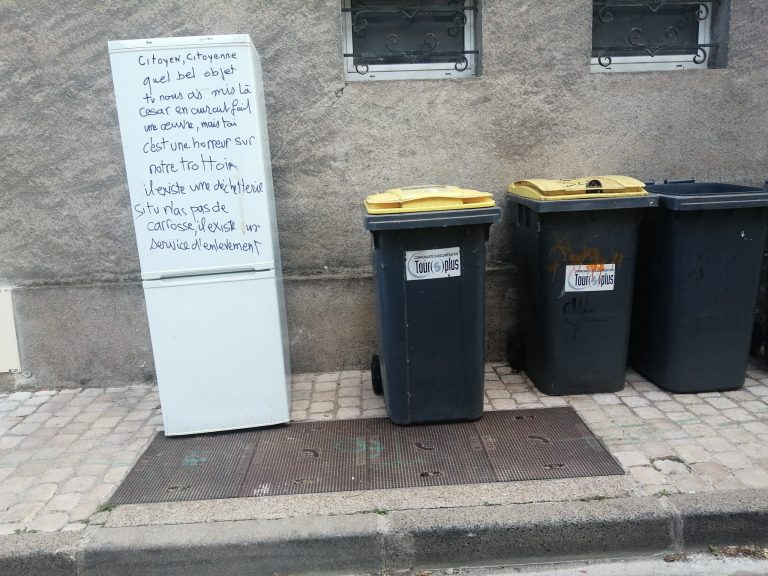 Citoyen, Citoyenne
quel bel objet
tu nous as mis là
Cesar en aurait fait
une œuvre, mais toi
c'est une horreur sur
notre trottoir
il existe une déchetterie
Si tu n'as pas de
carrosse, il existe un
service d'enlèvement
COMMUNAUTE D'AGGLOMERATION
Tour(s)plus
COMMUNAUTE D'AGGLOMERATION
Tour(s)plus